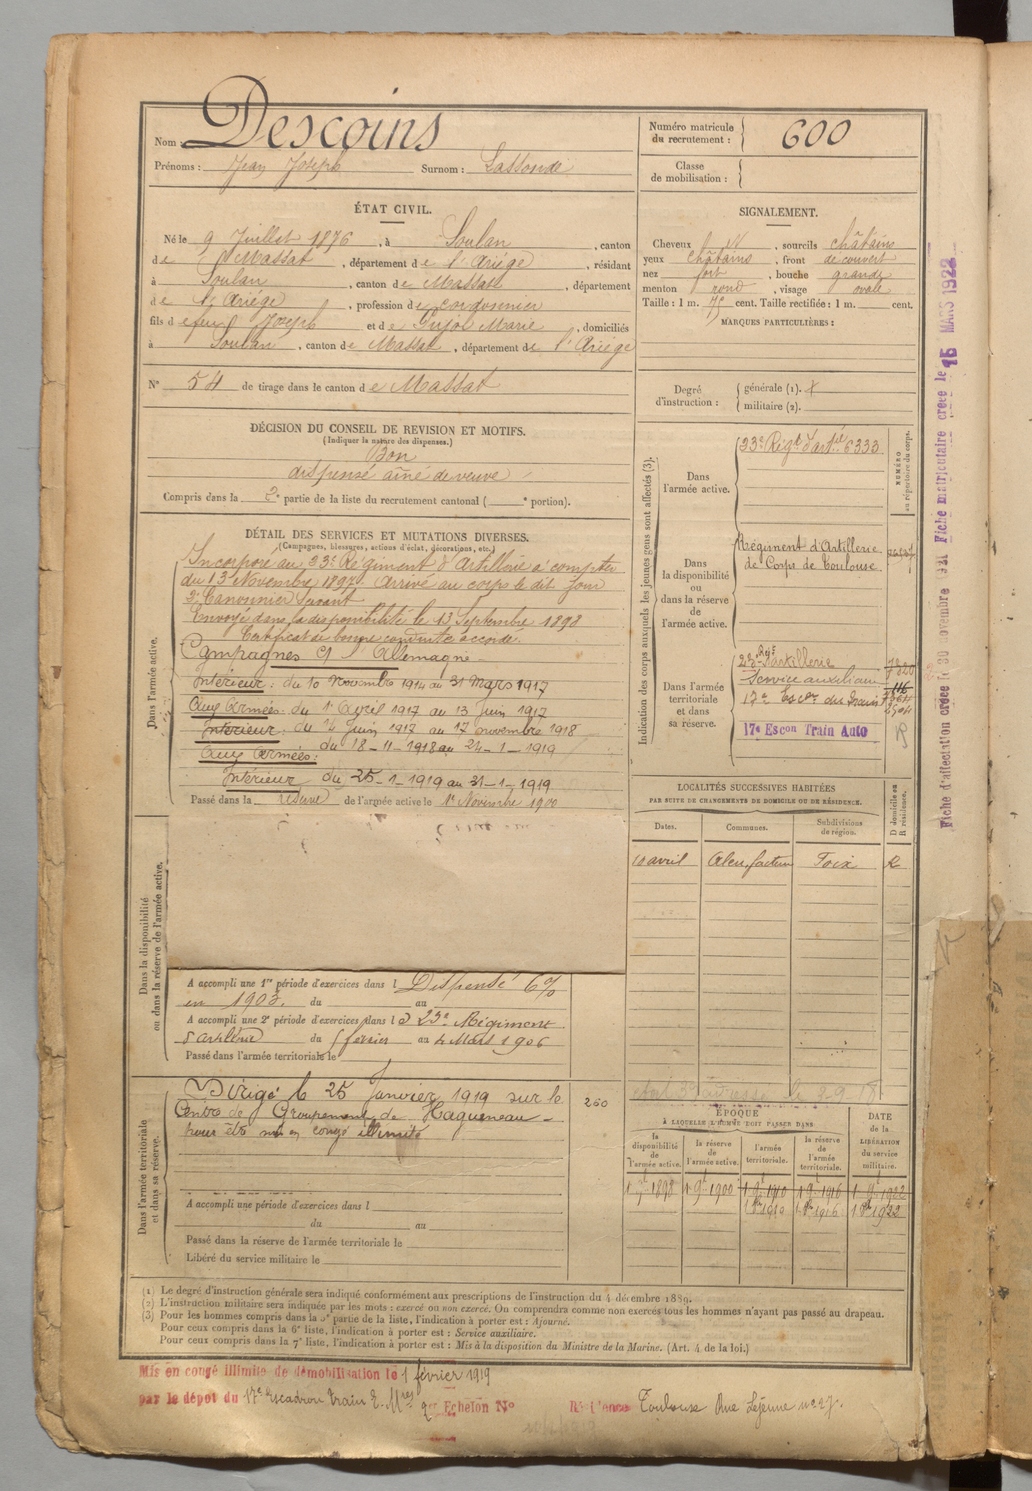 Nom : Descoins
Prénoms : Jean Joseph Surnom : Lassonde
ÉTAT CIVIL.
Né le 9 Juillet 1876, à Soulan, canton
de Massat, département de l'Ariège, résidant
à Soulan, canton de Massat, département
de l'Ariège, profession de cordonnier
fils de feu Joseph et de Pujol Marie, domiciliés
à Soulan, canton de Massat, département de l'Ariège
N° 54 de tirage dans le canton de Massat
DÉCISION DU CONSEIL DE REVISION ET MOTIFS.
(Indiquer la nature des dispenses.)
Bon
dispensé aîné de veuve
Compris dans la 2e partie de la liste du recrutement cantonal ( e portion).
DÉTAIL DES SERVICES ET MUTATIONS DIVERSES.
(Campagnes, blessures, actions d'éclat, décorations, etc.)
Dans l'armée active.
Incorporé au 23e Régiment d'Artillerie à compter
du 13 Novembre 1897. Arrivé au corps le dit jour
2e Canonnier Servant
Envoyé dans la disponibilité le 13 Septembre 1898
Certificat de bonne conduite accordé.
Campagnes Ct l'Allemagne
Intérieur : du 10 Novembre 1914 au 31 Mars 1917
Aux Armées : du 1er Avril 1917 au 13 Juin 1917
Intérieur : du 14 Juin 1917 au 17 novembre 1918
Aux Armées : du 18-11-1918 au 24-1-1919
Intérieur du 25-1-1919 au 31-1-1919
Passé dans la réserve de l'armée active le 1er Novembre 1900
Dans la disponibilité
ou dans la réserve de l'armée active.
A accompli une 1re période d'exercices dans l Dispensé 6%
en 1903. du au
A accompli une 2e période d'exercices dans le 23e Régiment
d'artillerie du février au 4 Mars 1906
Passé dans l'armée territoriale le
Dans l'armée territoriale
et dans sa réserve.
Dirigé le 25 Janvier 1919 sur le
Centre de Groupement de Haguenau
pour être mis en congé illimité
260
A accompli une période d'exercices dans l
du au
Passé dans la réserve de l'armée territoriale le
Libéré du service militaire le
Numéro matricule
du recrutement : 600
Classe
de mobilisation :
SIGNALEMENT.
Cheveux , sourcils châtains
yeux châtains, front découvert
nez fort, bouche grande
menton rond, visage ovale
Taille : 1 m. 75 cent. Taille rectifiée : 1 m. cent.
MARQUES PARTICULIÈRES :
Degré
d'instruction : générale (1).
militaire (2).
Indication des corps auxquels les jeunes gens sont affectés (3).
NUMÉRO
au répertoire du corps.
Dans
l'armée active.
23e Régt d'artie 6333
Dans
la disponibilité
ou
dans la réserve
de
l'armée active.
Régiment d'Artillerie
de Corps de Toulouse
Dans l'armée
territoriale
et dans
sa réserve.
23e Rgt d'artillerie 7320
Service auxiliaire
17e Escon du Train
17e Escon Train Auto
LOCALITÉS SUCCESSIVES HABITÉES
PAR SUITE DE CHANGEMENTS DE DOMICILE OU DE RÉSIDENCE.
Dates. Communes. Subdivisions
de région. D domicile ou
R résidence.
10 avril Foix R
ÉPOQUE
À LAQUELLE L'HOMME DOIT PASSER DANS
DATE
de la
LIBÉRATION
du service
militaire.
la
disponibilité
de
l'armée active.
la réserve
de
l'armée active.
l'armée
territoriale.
la réserve
de
l'armée
territoriale.
1898 1900 1910 1916 1922
1 8bre 1910 1 8bre 1916 1 8bre 1922
(1) Le degré d'instruction générale sera indiqué conformément aux prescriptions de l'instruction du 4 décembre 1889.
(2) L'instruction militaire sera indiquée par les mots : exercé ou non exercé. On comprendra comme non exercés tous les hommes n'ayant pas passé au drapeau.
(3) Pour les hommes compris dans la 5e partie de la liste, l'indication à porter est : Ajourné.
Pour ceux compris dans la 6e liste, l'indication à porter est : Service auxiliaire.
Pour ceux compris dans la 7e liste, l'indication à porter est : Mis à la disposition du Ministre de la Marine. (Art. 4 de la loi.)
Mis en congé illimité de démobilisation le 1 février 1919
par le dépôt du 17e Escadron Train Echelon N° Résidence Toulouse Rue Lejeune no 27.
Fiche d'affectation créée le 30 novembre 1921 Fiche matriculaire créée le 15 MARS 1922